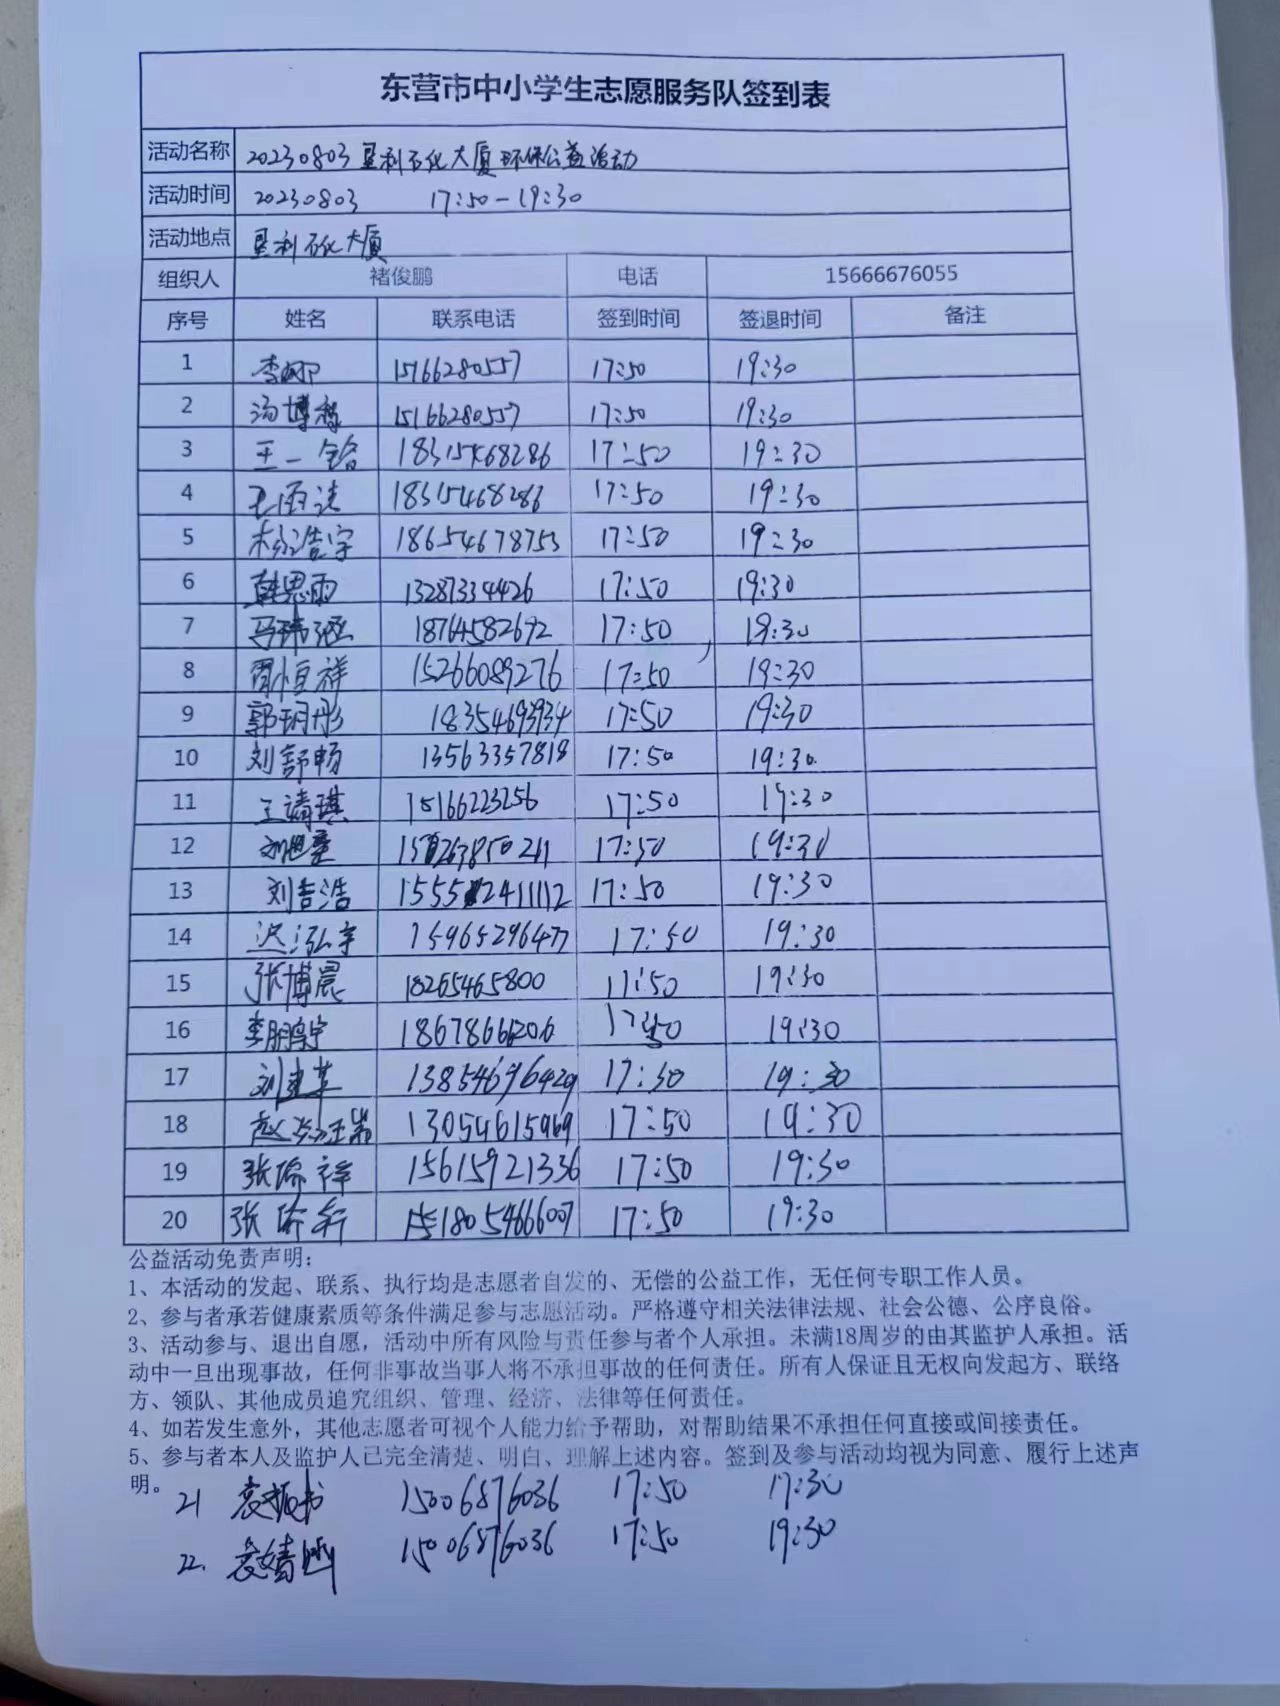 东营市中小学生志愿服务队签到表
活动名称 20230803垦利石化大厦环保公益活动
活动时间 20230803 17:50-19:30
活动地点 垦利石化大厦
组织人 褚俊鹏 电话 15666676055
序号 姓名 联系电话 签到时间 签退时间 备注
1 李娜 15166280557 17:50 19:30
2 汤博 15166280557 17:50 19:30
3 王一 18315468286 17:50 19:30
4 18315468286 17:50 19:30
5 浩宇 18654678753 17:50 19:30
6 韩思雨 13287334426 17:50 19:30
7 马玮涵 18764582692 17:50 19:30
8 恒祥 15266089276 17:50 19:30
9 郭玥彤 18354693934 17:50 19:30
10 刘舒畅 13563357818 17:50 19:30
11 王靖琪 15166223256 17:50 19:30
12 17:50 19:30
13 刘吉浩 17:50 19:30
14 迟泓宇 15965296477 17:50 19:30
15 张博晨 18265465800 17:50 19:30
16 李鹏宇 18678666206 17:50 19:30
17 刘建革 13854696429 17:30 19:30
18 赵 13054615969 17:50 19:30
19 张 祥 15615921336 17:50 19:30
20 张 18054666007 17:50 19:30
公益活动免责声明：
1、本活动的发起、联系、执行均是志愿者自发的、无偿的公益工作，无任何专职工作人员。
2、参与者承若健康素质等条件满足参与志愿活动。严格遵守相关法律法规、社会公德、公序良俗。
3、活动参与、退出自愿，活动中所有风险与责任参与者个人承担。未满18周岁的由其监护人承担。活
动中一旦出现事故，任何非事故当事人将不承担事故的任何责任。所有人保证且无权向发起方、联络
方、领队、其他成员追究组织、管理、经济、法律等任何责任。
4、如若发生意外，其他志愿者可视个人能力给予帮助，对帮助结果不承担任何直接或间接责任。
5、参与者本人及监护人已完全清楚、明白、理解上述内容。签到及参与活动均视为同意、履行上述声
明。
21 袁振书 15006876036 17:50 17:30
22. 袁婧 15006876036 17:50 19:30